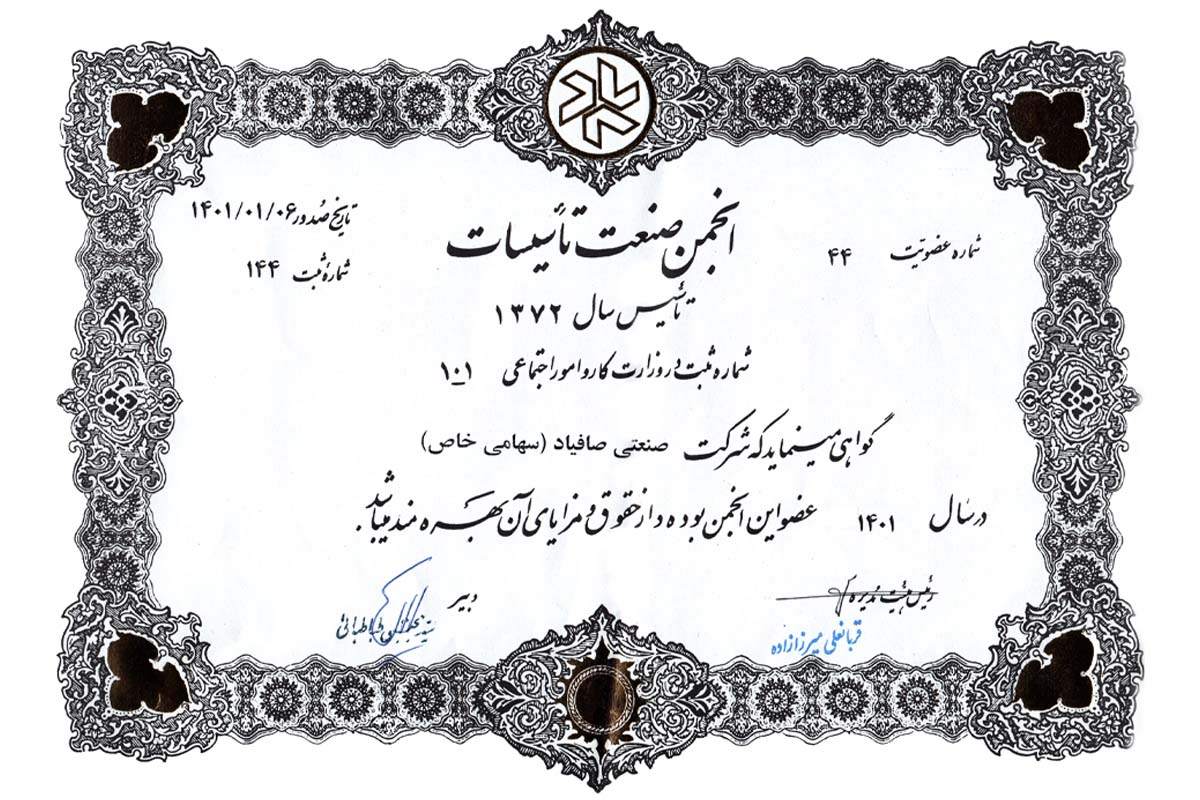 انجمن صنعت تأسیسات
شماره عضویت ۴۴
تاریخ صدور ۱۴۰۱/۰۱/۰۶
شماره ثبت ۱۴۴
تأسیس سال ۱۳۷۲
شماره ثبت در وزارت کار و امور اجتماعی ۱۰۱
گواهی مینماید که شرکت صنعتی صافیاد (سهامی خاص)
در سال ۱۴۰۱ عضو این انجمن بوده و از حقوق و مزایای آن بهره مند میباشد.
رئیس هیئت مدیره
قربانعلی میرزازاده
دبیر
طباطبائی